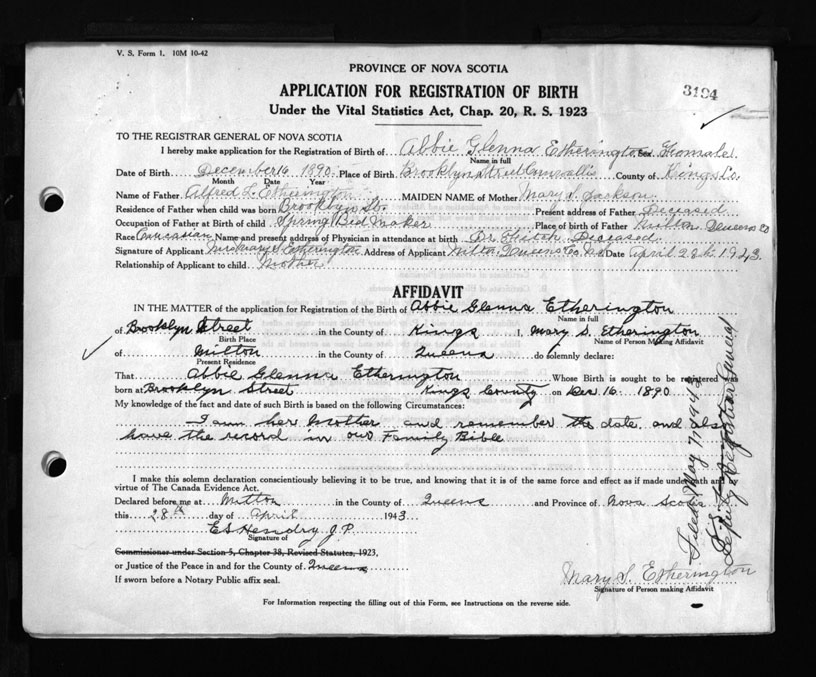 V. S. Form 1. 10M 10-42
PROVINCE OF NOVA SCOTIA
APPLICATION FOR REGISTRATION OF BIRTH
3194
Under the Vital Statistics Act, Chap. 20, R. S. 1923
TO THE REGISTRAR GENERAL OF NOVA SCOTIA
I hereby make application for the Registration of Birth of Abbie Glenna Etherington Sex Female
Name in full
Date of Birth December 16 1890 Place of Birth Brooklyn Street Cornwallis County of Kings Co.
Month Date Year
Name of Father Alfred L. Etherington MAIDEN NAME of Mother Mary S. Jackson
Residence of Father when child was born Brooklyn St. Present address of Father Deceased
Occupation of Father at Birth of child Spring Bed Maker Place of birth of Father Milton Queens Co
Race Caucasian Name and present address of Physician in attendance at birth Dr. Deceased
Signature of Applicant Mrs Mary S Etherington Address of Applicant Milton Queens Co. N.S. Date April 28th 1943.
Relationship of Applicant to child Mother
AFFIDAVIT
IN THE MATTER of the application for Registration of the Birth of Abbie Glenna Etherington
Name in full
of Brooklyn Street in the County of Kings I, Mary S. Etherington
Birth Place Name of Person Making Affidavit
of Milton in the County of Queens do solemnly declare:
Present Residence
That Abbie Glenna Etherington Whose Birth is sought to be registered was
born at Brooklyn Street Kings County on Dec 16 1890
My knowledge of the fact and date of such Birth is based on the following Circumstances:
I am her Mother and remember the date and also
have the record in our Family Bible
I make this solemn declaration conscientiously believing it to be true, and knowing that it is of the same force and effect as if made under oath and by
virtue of The Canada Evidence Act.
Declared before me at Milton in the County of Queens and Province of Nova Scotia
this 28th day of April 1943
E S Hendry J.P.
Signature of
Commissioner under Section 5, Chapter 38, Revised Statutes, 1923,
or Justice of the Peace in and for the County of Queens
If sworn before a Notary Public affix seal.
Mary S. Etherington
Signature of Person making Affidavit
For Information respecting the filling out of this Form, see Instructions on the reverse side.
Filed May 7, 1943
Deputy Registrar General